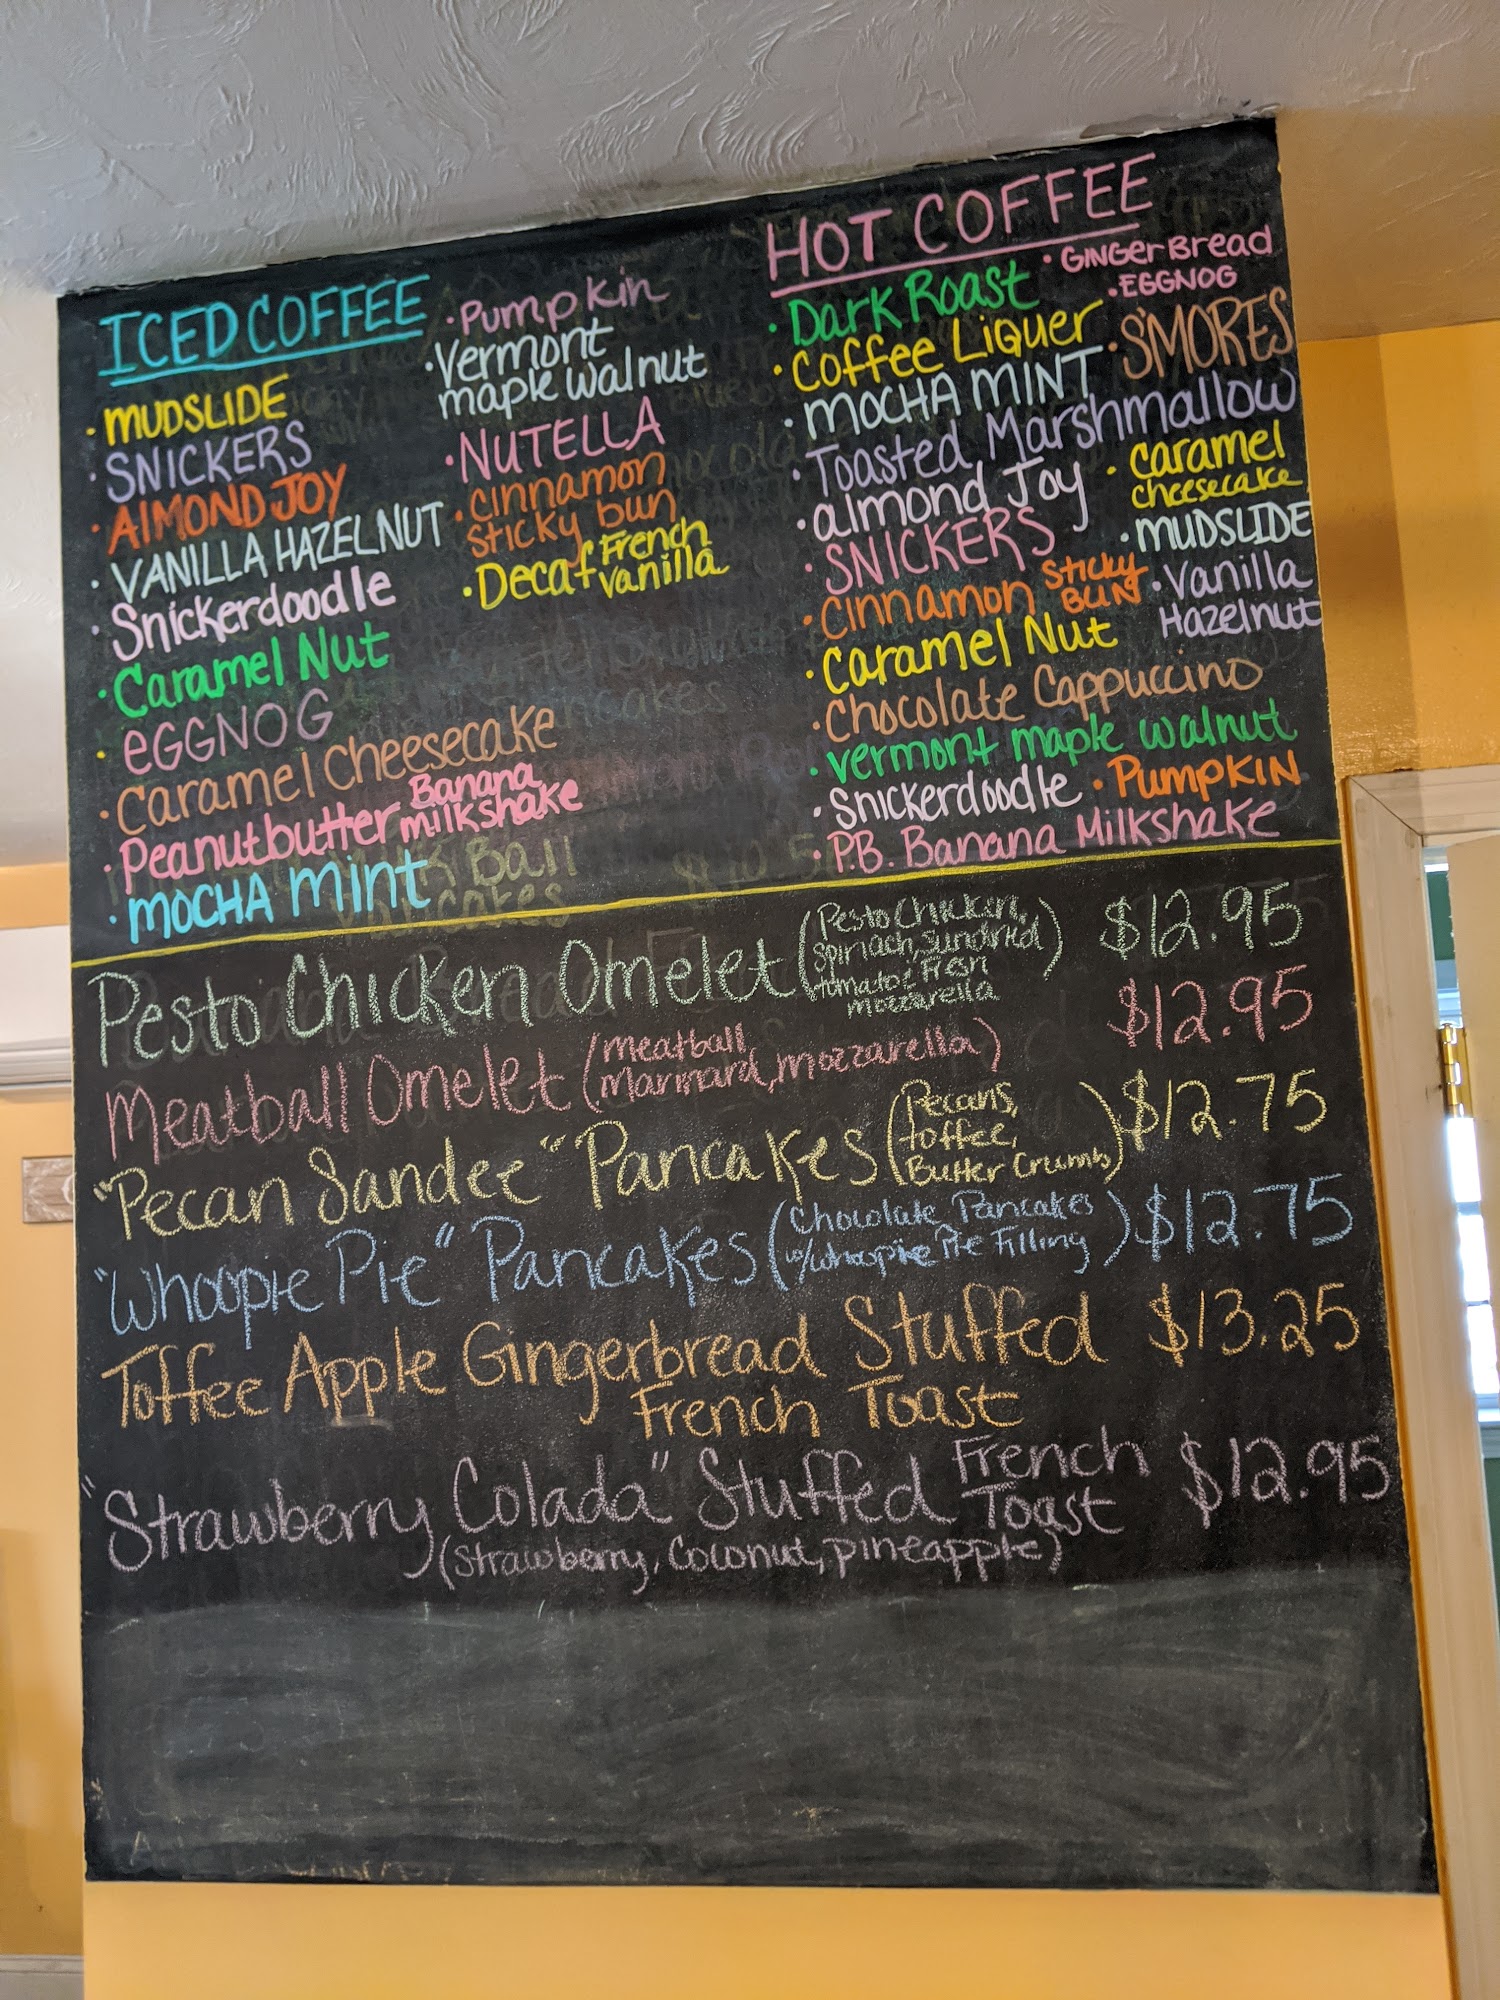 ICED COFFEE
· MUDSLIDE
· SNICKERS
· AlMOND JOY
· VANILLA HAZELNUT
· Snickerdoodle
· Caramel Nut
· eGGNOG
· Caramel Cheesecake
· Peanutbutter Banana Milkshake
· MOCHA Mint
· Pumpkin
· Vermont
maple walnut
· NUTELLA
· cinnamon
sticky bun
· Decaf French Vanilla
HOT COFFEE
· Dark Roast
· Coffee Liquer
· MOCHA MINT
· Toasted Marshmallow
· almond Joy
· SNICKERS
· Cinnamon Sticky BUN
· Caramel Nut
· Chocolate Cappuccino
· vermont maple walnut
· Snickerdoodle
· P.B. Banana Milkshake
· GINGerBread
· EGGNOG
· S'MORES
· Caramel
cheesecake
· MUDSLIDE
· Vanilla
Hazelnut
· PumpKIN
Pesto Chicken Omelet (Pesto Chicken, $12.95
Spinach, Sundried
tomato & Fresh
mozzarella)
Meatball Omelet (meatball, $12.95
Marinara, mozzarella)
"Pecan Sandee" Pancakes (Pecans, $12.75
toffee,
Butter Crumbs)
"Whoopie Pie" Pancakes (Chocolate Pancakes $12.75
w/whoopie Pie Filling)
Toffee Apple Gingerbread Stuffed $13.25
French Toast
"Strawberry Colada" Stuffed French Toast $12.95
(Strawberry, Coconut, pineapple)